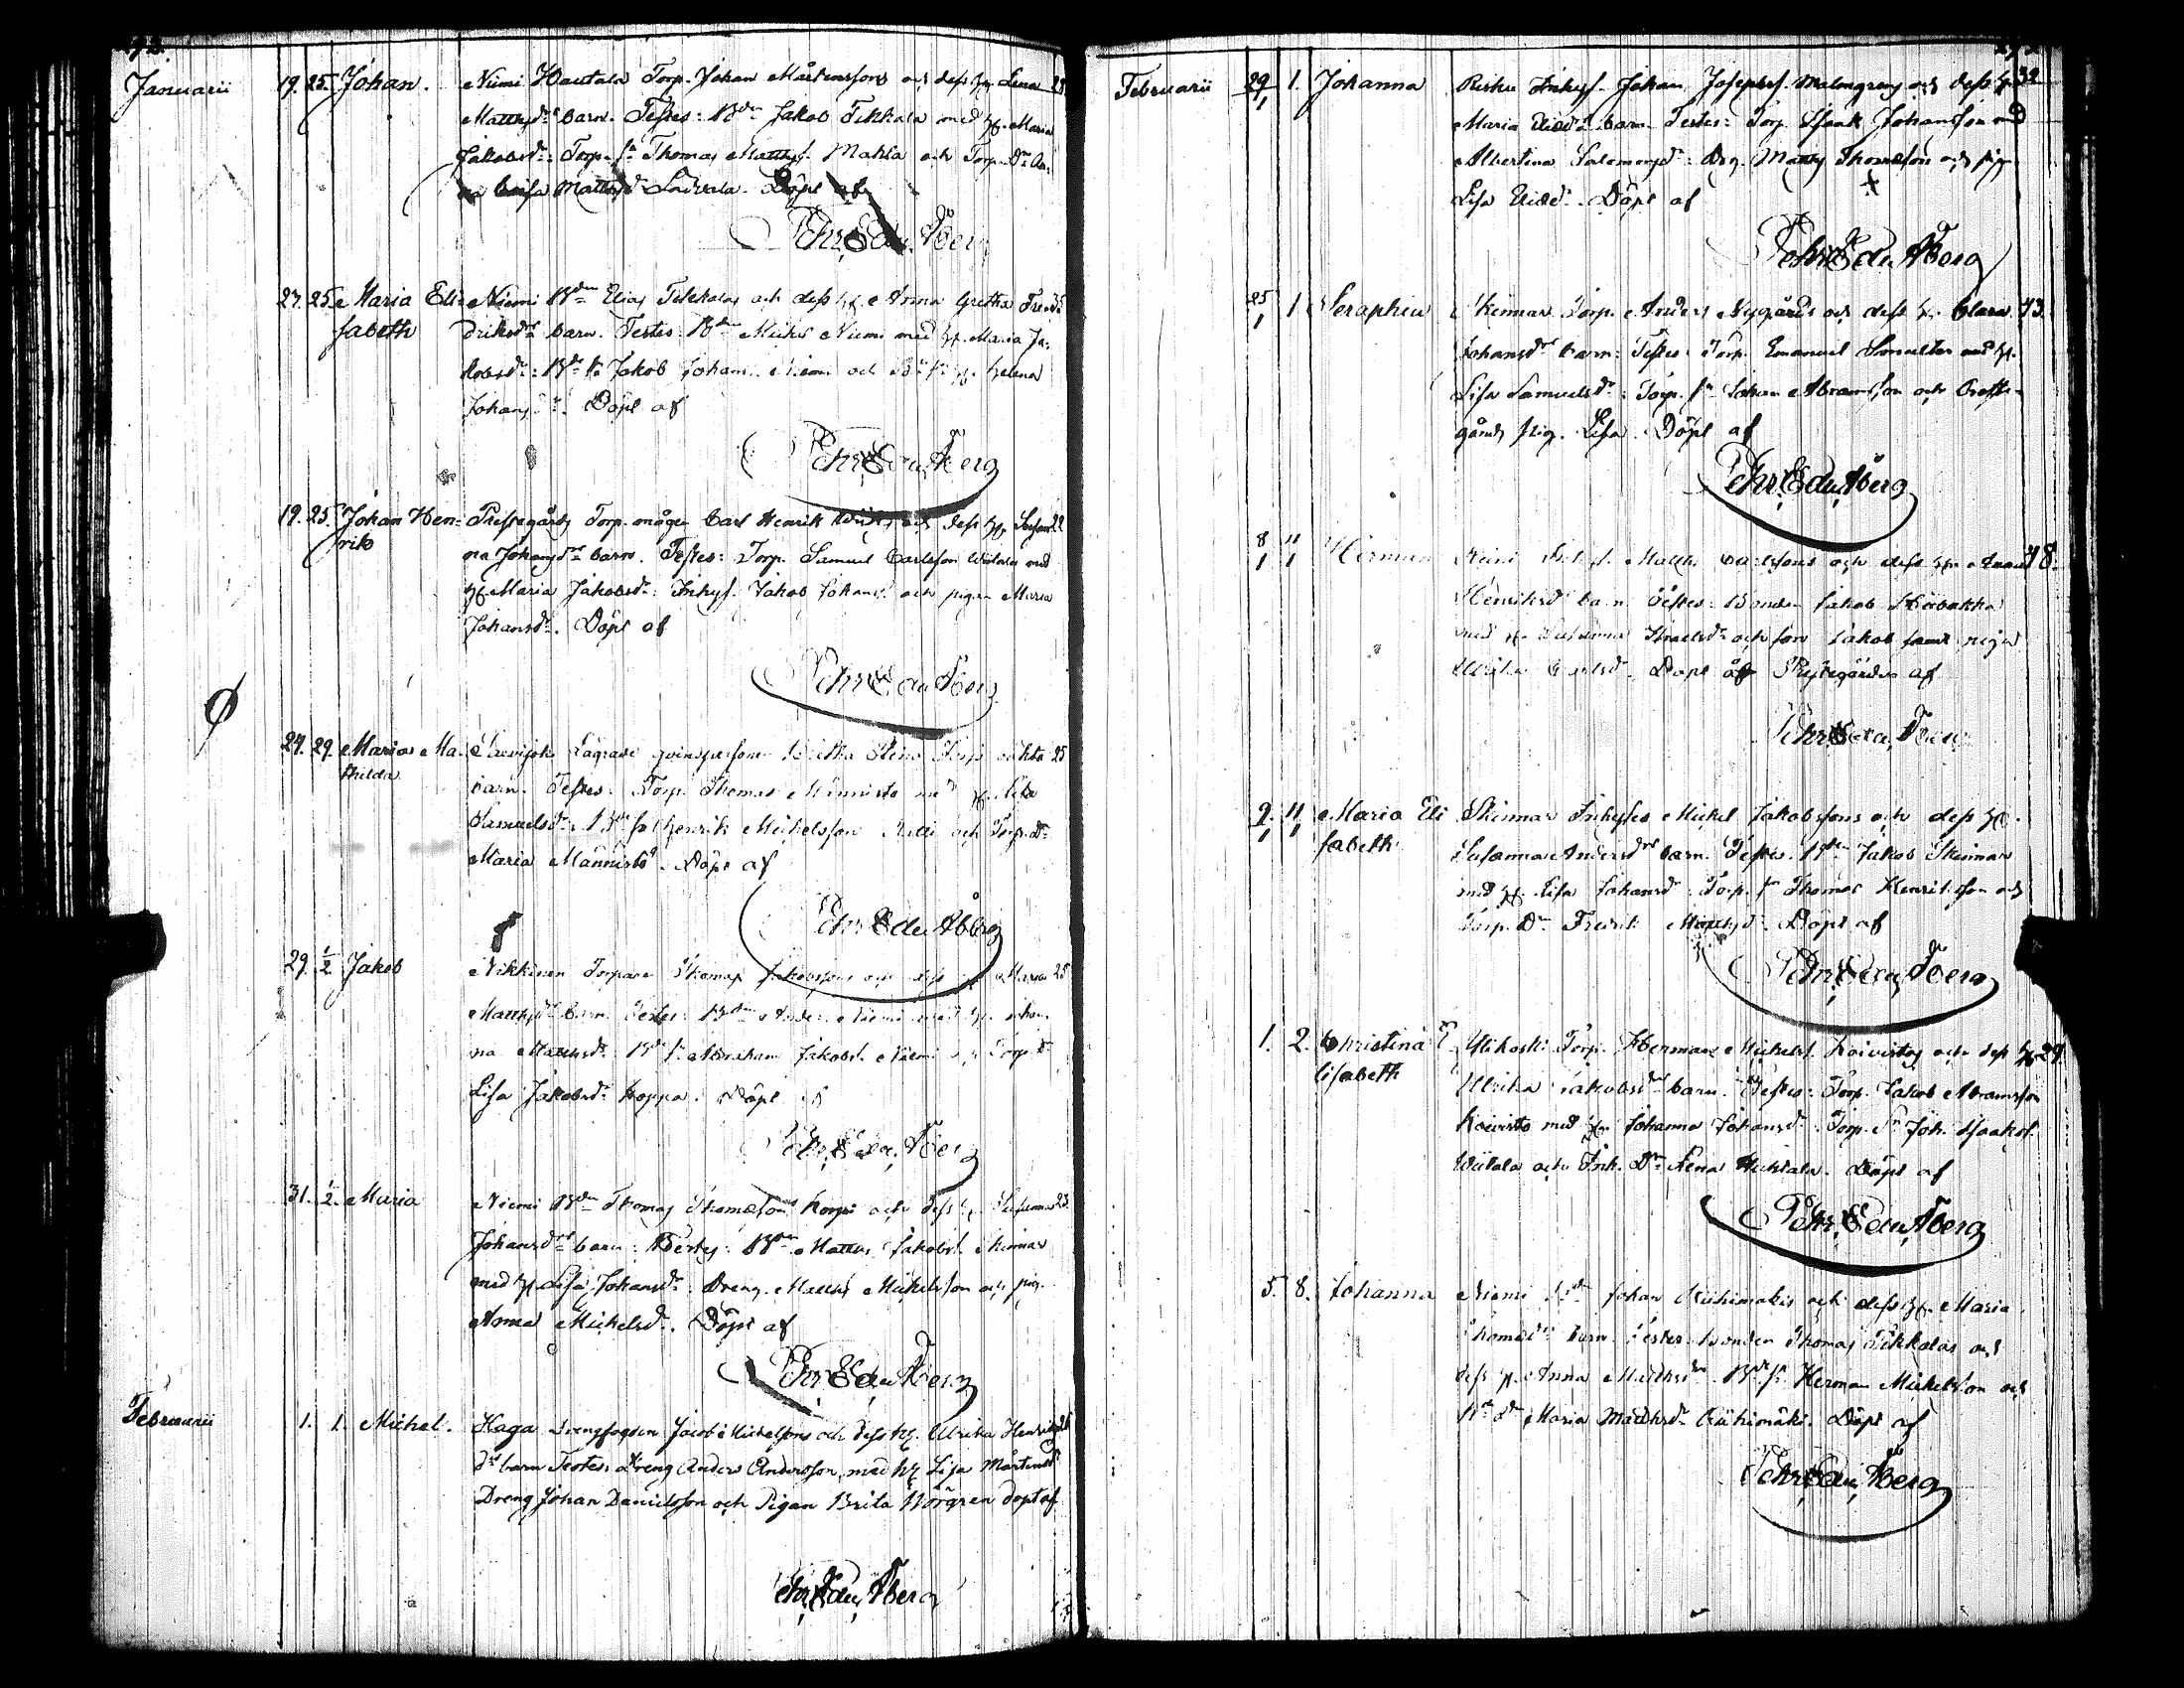 Januarii 19. 25. Johan. Niemi Hautala Torp. Johan Mårtenssons och dess h. Lisa 28
Matthsdr barn. Testes: Bdn Jakob Tikkala med h. Maria
Jakobsdr: Torp. sn Thomas Matthss. Mahla och Torp. Dr An-
na Caisa Matthsdr Döpt af
Pehr Edv. Åberg
27. 25. Maria Eli- Niemi Bdn Elias Tikkalas och dess h. Anna Gretha Fre-
sabeth driksdr barn. Testes: Bdn Michel Niemi med h. Maria Ja-
kobsdr: Bde sn Jakob Johans. Niemi och h. Helena
Johansdr. Döpt af
Pehr Edv. Åberg
19. 25. Johan Hen- Prestegårds Torp. mågen Carl Henrik och dess h. Susan 22
rik na Johansdr barn. Testes: Torp. Samuel Carlsson Wiitala med
h. Maria Jakobsdr: Inhys. Jakob Johans. och pigan Maria
Johansdr. Döpt af
Pehr Edv. Åberg
24. 29. Maria Ma- Lägrade qvinspersonen 25
thilda barn. Testes: Torp. Thomas Männistö med h. Lisa
Samuelsdr: Henrik Michelsson och Torp. dr
Maria Männistö. Döpt af
Pehr Edv. Åberg
29. 1/2 Jakob Nikkinen Torpare Thomas Jakobssons och dess h. Maria 25
Matthsdr barn Testes: Bdn Niemi med h. Johan-
na Matthsdr. Bde sn Abraham Jakobs. Niemi Torp. dr
Lisa Jakobsdr Koppa. Döpt af
Pehr Edv. Åberg
31. 1/2. Maria Niemi Bdn Thomas Thomassons Korpi och dess h. Susanna 23.
Johansdr barn: Testes: Bdn Matths Jakobs. Skinnar
med h. Lisa Johansdr: Dreng. Matths Michelsson och pig.
Anna Michelsdr. Döpt af
Pehr Edv. Åberg
Februarii 1. 1. Michel. Haga drengfogden Jacob Michelsons och dess h. Ulrika Henriks
dr barn Testes: Dreng Anders Andersson med h. Lisa Mårtensdr
Dreng Johan Danielsson och Pigan Brita Norgren döpt af
Pehr Edv. Åberg
Februarii 29/1 1. Johanna Risku Inhys. Johan Josephs. Malmgrens och dess h. 32
Maria barn. Testes: Torp. Isaak Johansson med
Albertina Salomonsdr: Drg. Matths Thomasson och pig.
Lisa Döpt af
Pehr Edv. Åberg
25/1 1 Seraphia Skinnar Torp. Anders Nygårds och dess h. Clara 43.
Johansdr barn: Testes: Torp. Emanuel Smulter med h.
Lisa Samuelsdr: Torp. sn Johan Abramsson och Preste-
gårds pig. Lisa. Döpt af
Pehr Edv. Åberg
8/1 11/1 Herman Matths Carlssons och dess h. 48.
Henriksdr barn Testes: Bonden Jakob
med h. Susanna Israelsdr och son Jakob samt pigan
Ulrika Döpt af
Pehr Edv. Åberg
9/1 11/1 Maria Eli Skinnar Inhyses Michel Jakobssons och dess h.
sabeth Susanna Andersdr barn. Testes. Bdn Jakob Skinnar
med h. Lisa Johansdr: Torp. sn Thomas Henriksson och
Torp. Dr Fredrik Matthsdr. Döpt af
Pehr Edv. Åberg
1. 2. Christina E Ylikoski Torp. Herman Michels. Koivistos och dess h. 29.
lisabeth Ulrika Jakobsdr barn. Testes: Torp. Jakob Abramsson
Koivisto med h. Johanna Johansdr. Torp. Sn Joh. Isaaks.
Wiitala och Inh. Dr Lena Huhtala. Döpt af
Pehr Edv. Åberg
5. 8. Johanna Niemi Bdn Johan Riihimäkis och dess h. Maria
Thomasdr barn. Testes. Bonden Thomas Tikkalas och
dess h. Anna Matthsdr Bde sn Herman Michelsson och
Bde Dr Maria Matthsdr Riihimäki. Döpt af
Pehr Edv. Åberg